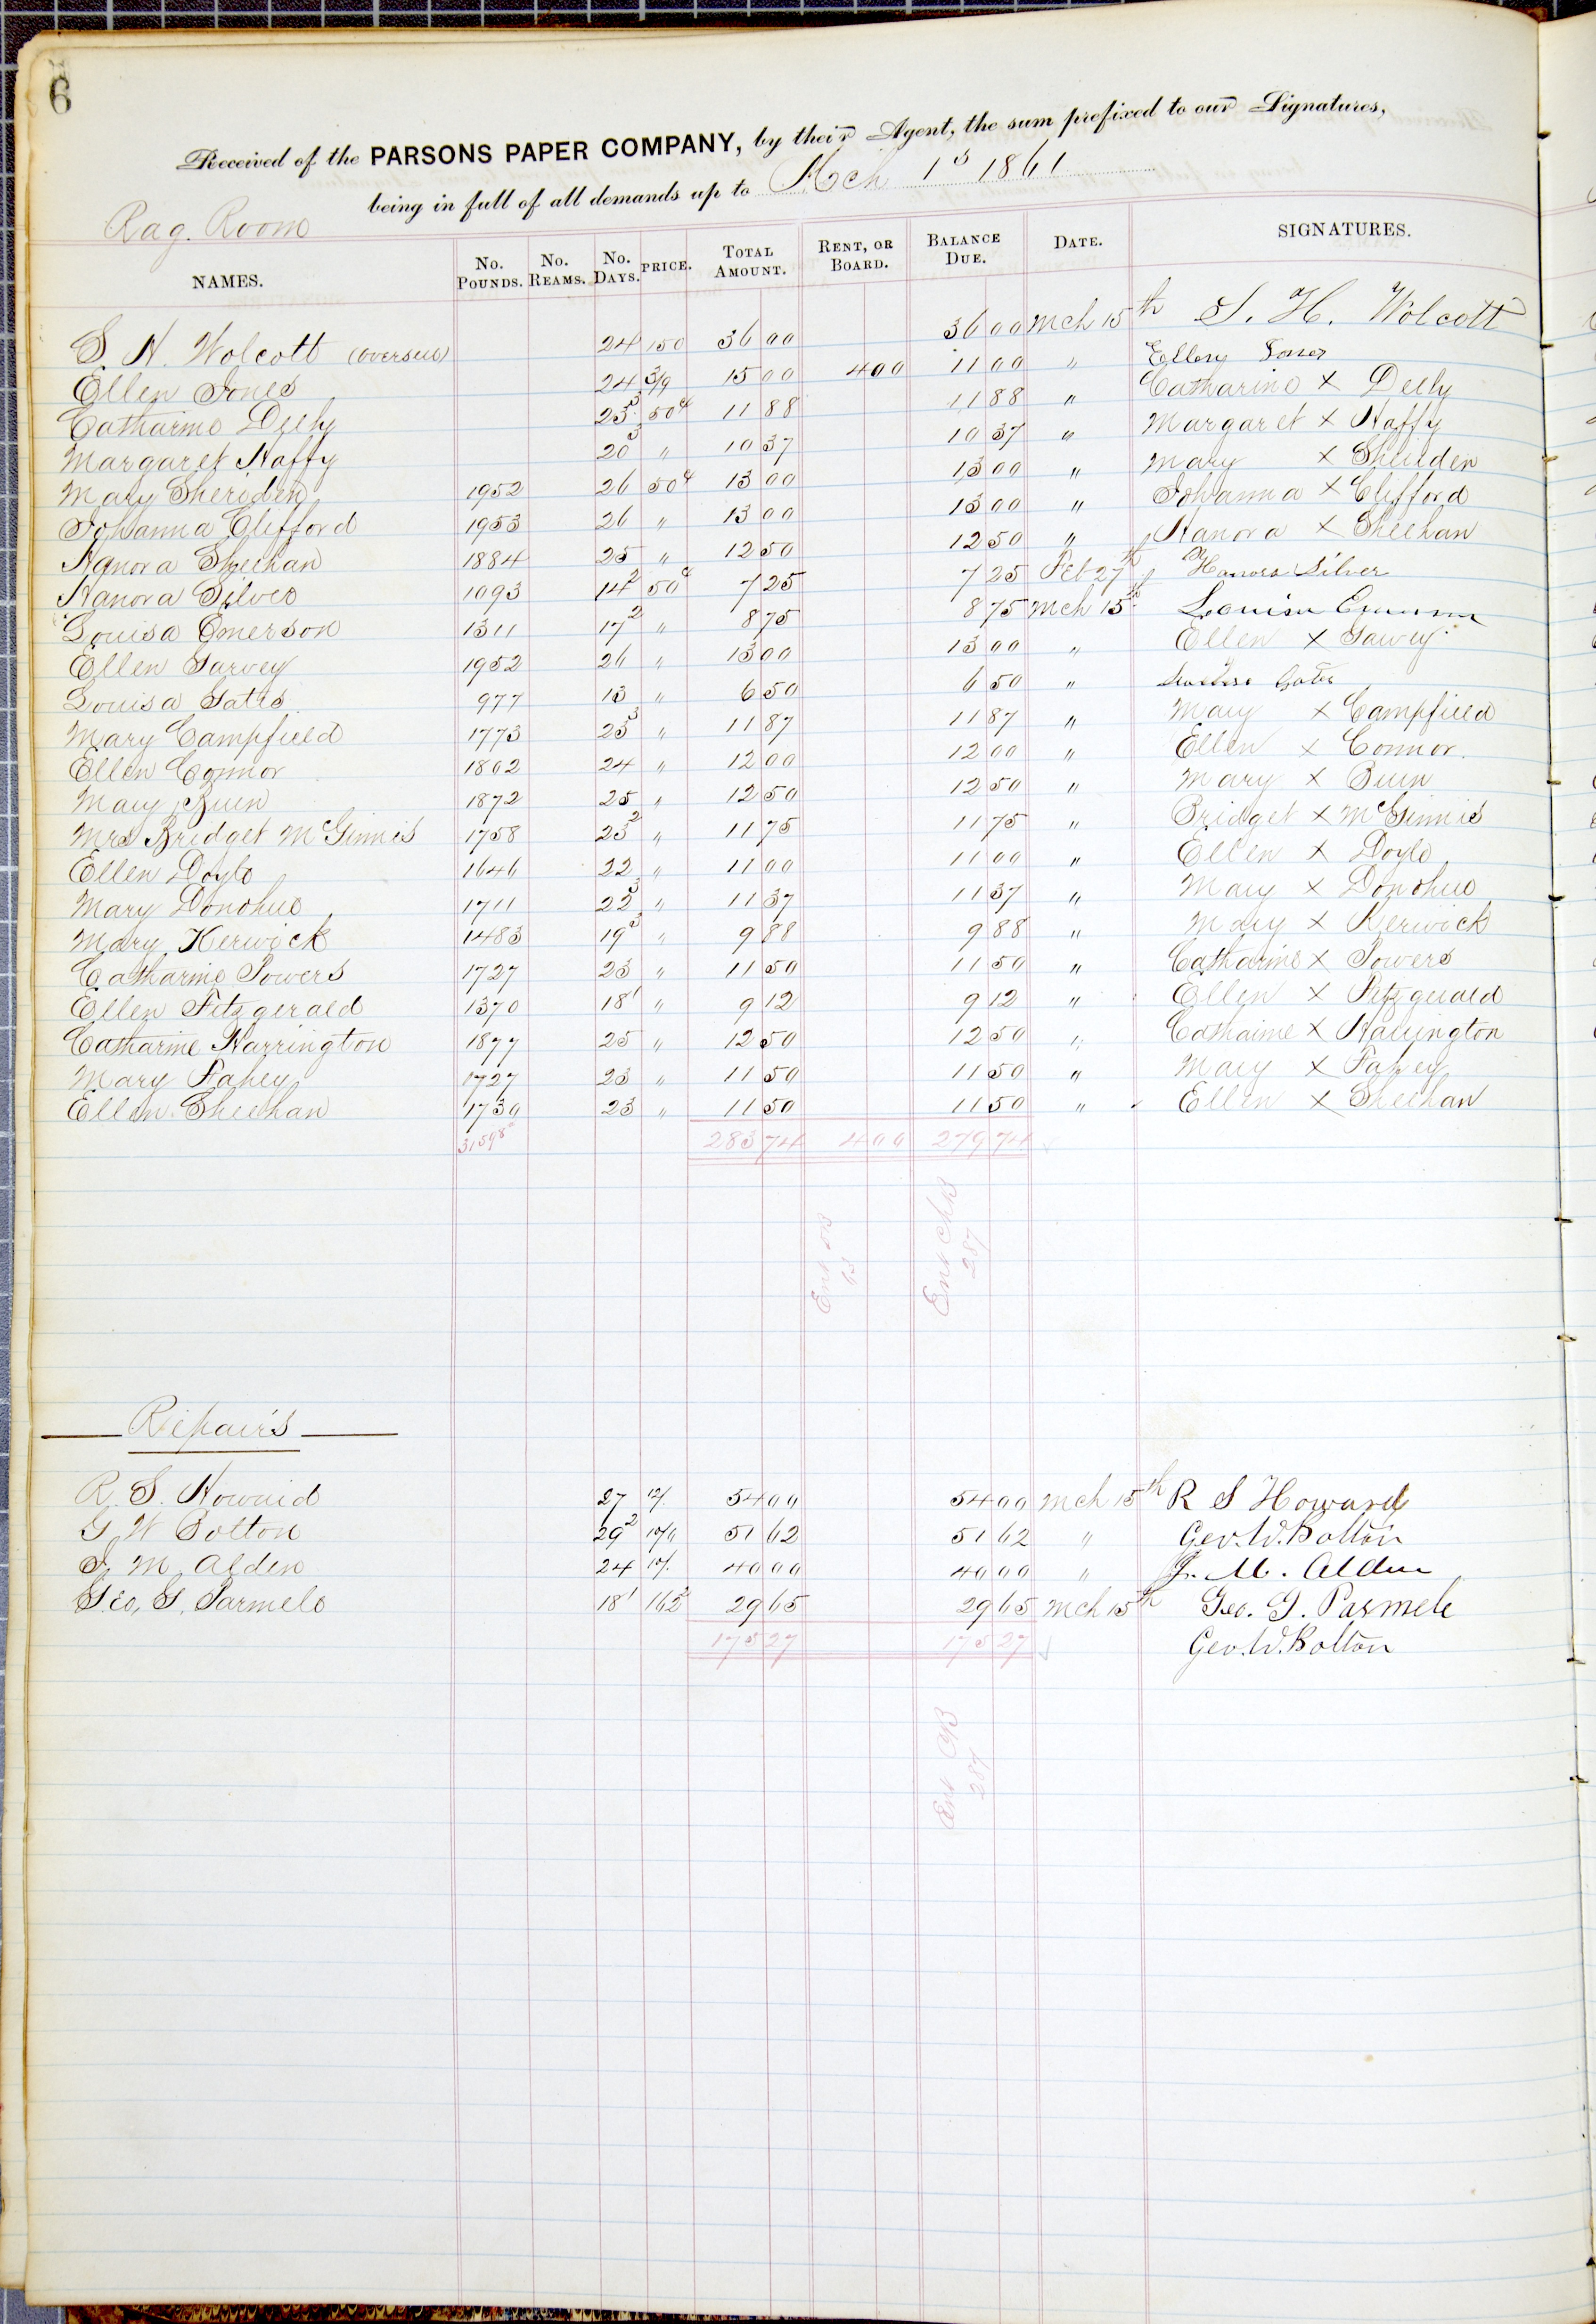 6
Received of the PARSONS PAPER COMPANY, by their Agent, the sum prefixed to our Signatures,
being in full of all demands up to Mch 1st 1861
Rag. Room
NAMES. No. Pounds. No. Reams. No. Days. PRICE. Total Amount. Rent, or Board. Balance Due. Date. SIGNATURES.
S. H. Wolcott (overseer) 24 150 36 00 36 00 Mch 15th S. H. Wolcott
Ellen Jones 24 3/9 15 00 4 00 11 00 " Ellen Jones
Catharine Deely 23 3 50 c 11 88 11 88 " Catharine X Deely
Margaret Haffy 20 3 " 10 37 10 37 " Margaret X Haffy
Mary Sheriden 1952 26 50 c 13 00 13 00 " Mary X Sheriden
Johanna Clifford 1953 26 " 13 00 13 00 " Johanna X Clifford
Hanora Sheehan 1884 25 " 12 50 12 50 " Hanora X Sheehan
Hanora Silver 1093 14 2 50 c 7 25 7 25 Feb 27th Hanora Silver
Louisa Emerson 1311 17 2 " 8 75 8 75 Mch 15th Louisa Emerson
Ellen Garvey 1952 26 " 13 00 13 00 " Ellen X Garvey
Louisa Gates 977 13 " 6 50 6 50 " Louisa Gates
Mary Campfield 1773 23 3 " 11 87 11 87 " Mary X Campfield
Ellen Connor 1802 24 " 12 00 12 00 " Ellen X Connor.
Mary Buin 1872 25 " 12 50 12 50 " Mary X Buin
Mrs Bridget McGinnis 1758 23 2 " 11 75 11 75 " Bridget X McGinnis
Ellen Doyle 1646 22 " 11 00 11 00 " Ellen X Doyle
Mary Donohue 1711 22 3 " 11 37 11 37 " Mary X Donohue
Mary Kerwick 1483 19 3 " 9 88 9 88 " Mary X Kerwick
Catharine Powers 1727 23 " 11 50 11 50 " Catharine X Powers
Ellen Fitzgerald 1370 18 1 " 9 12 9 12 " Ellen X Fitzgerald
Catharine Harrington 1877 25 " 12 50 12 50 " Catharine X Harrington
Mary Fahey 1727 23 " 11 50 11 50 " Mary X Fahey
Ellen Sheehan 1730 23 " 11 50 11 50 " Ellen X Sheehan
31598 283 74 4 00 279 74
Ent
63
Ent Ch B
287
Repairs
R. S. Howard 27 12/. 54 00 54 00 Mch 15th R S Howard
G W Bolton 29 2 10/6 51 62 51 62 " Geo. W. Bolton
J. M. Alden 24 10/. 40 00 40 00 " J. M. Alden
Geo, G. Parmele 18 1 162 29 65 29 65 Mch 15th Geo. G. Parmele
175 27 175 27 Geo. W. Bolton
Ent CB
287